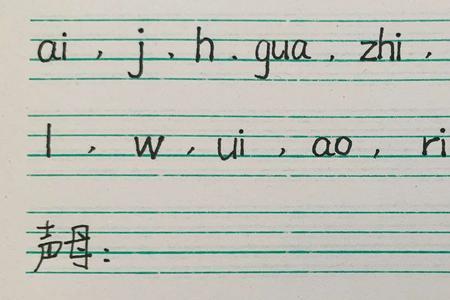 ai , j , h . gua , zhi ,
l , w , ui , ao , ri
声母: